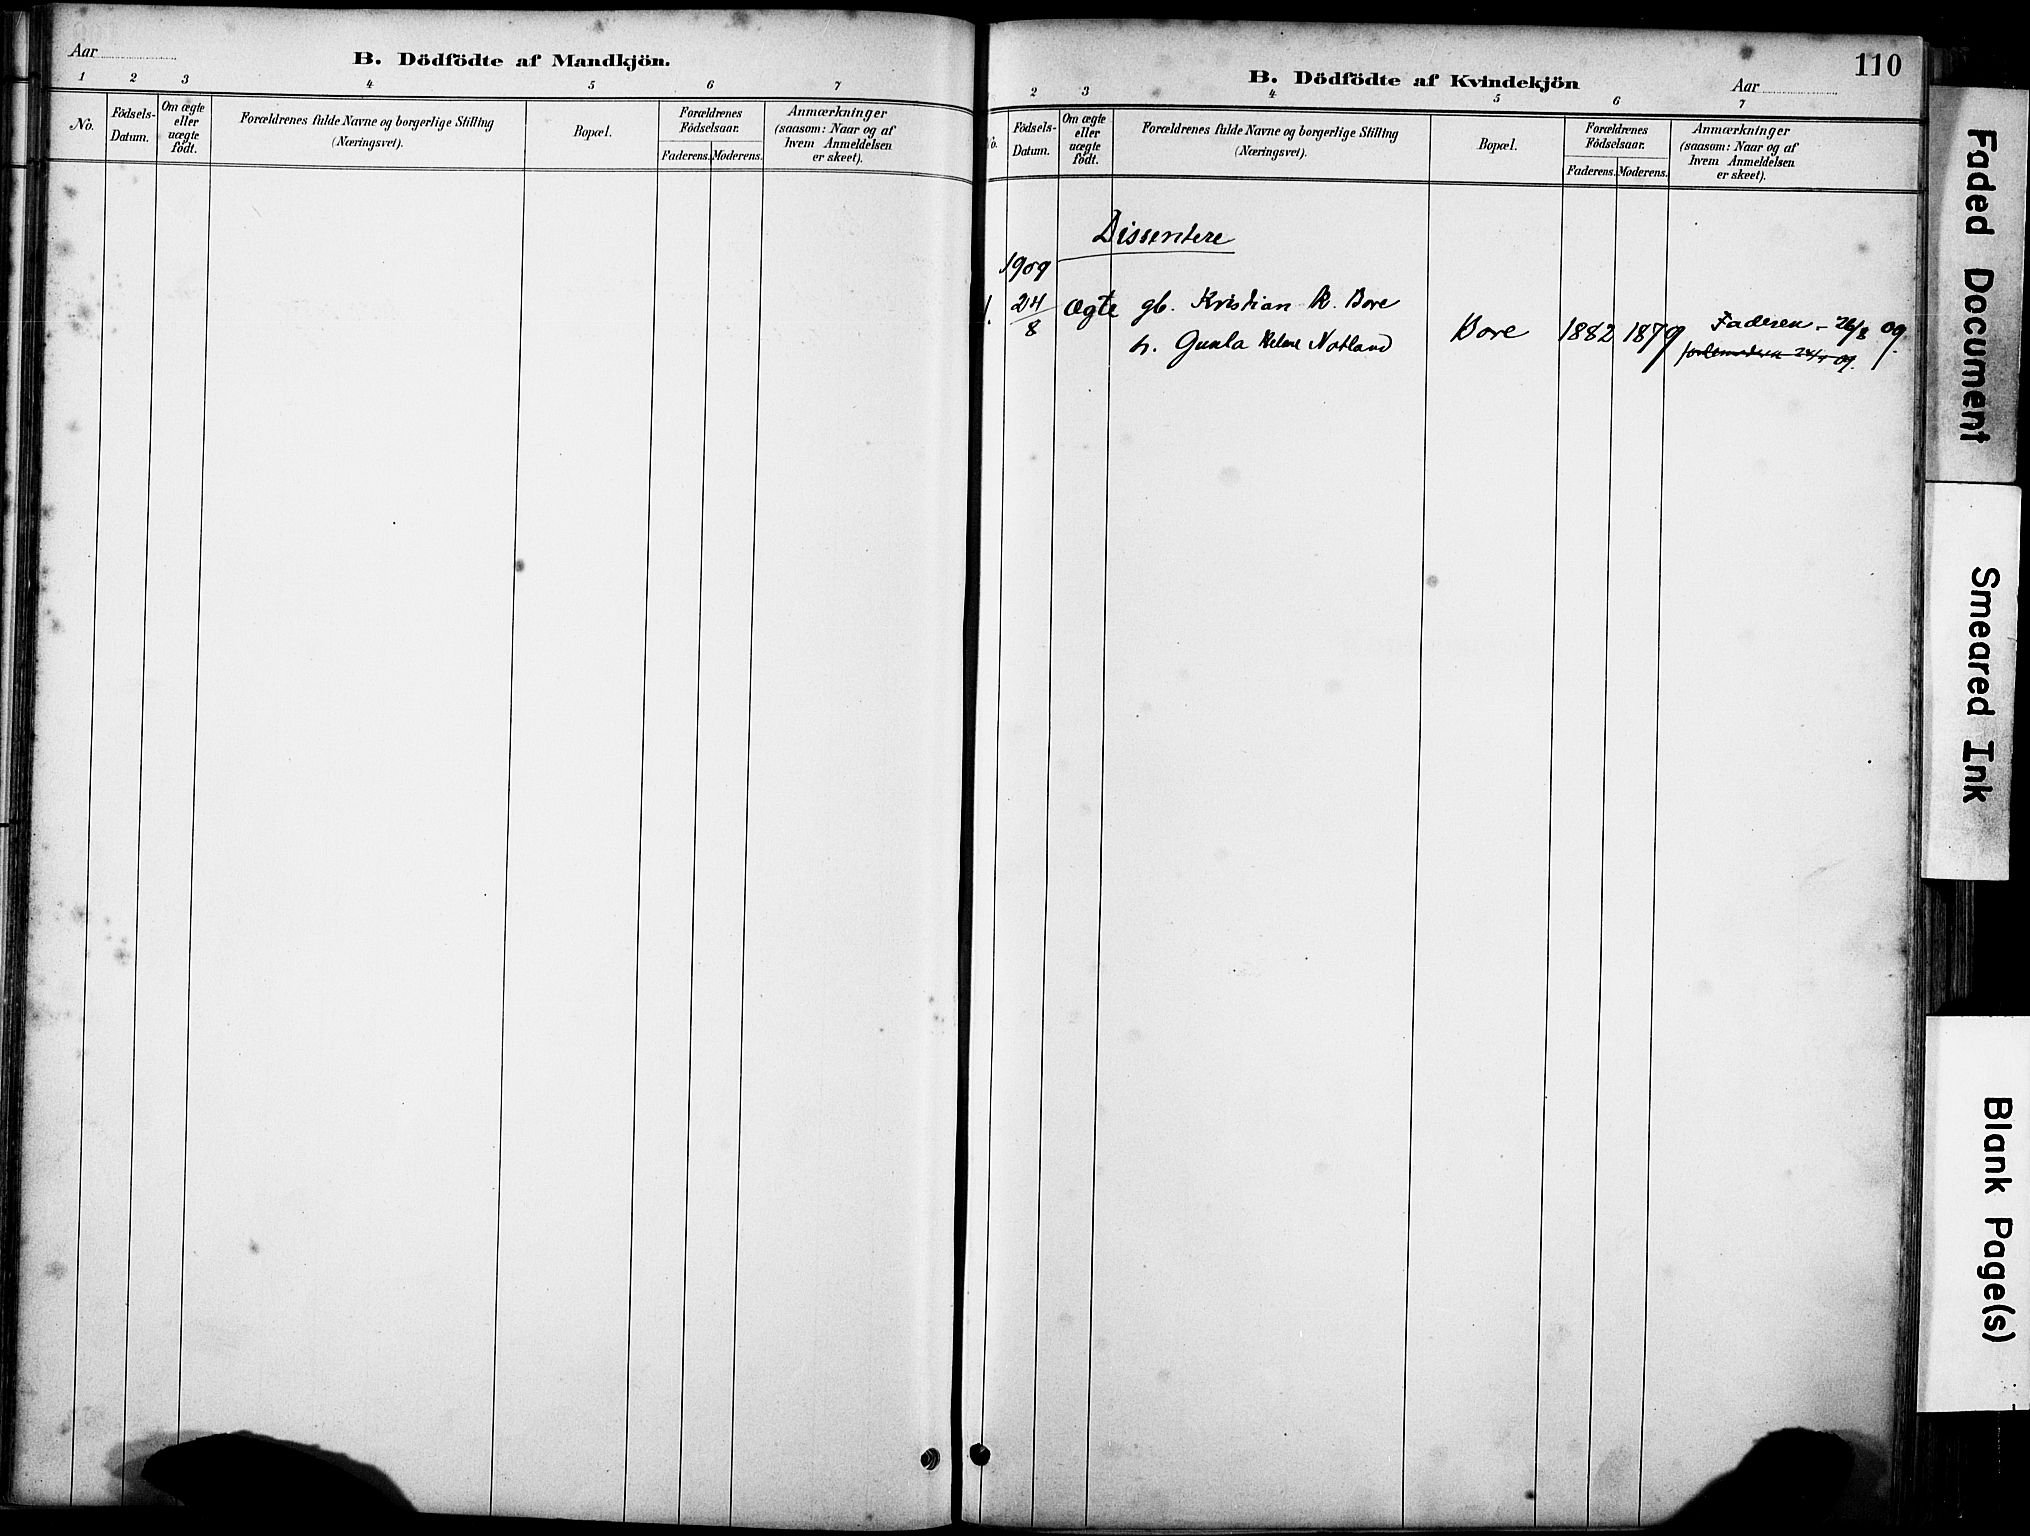 Aar
B. Dödfödte af Mandkjön.
1 2 3 4 5 6 7
No.
Födsels-
Datum.
Om ægte
eller
uægte
födt.
Forældrenes fulde Navne og borgerlige Stilling
(Næringsvei).
Bopæl.
Forældrenes
Födselsaar.
Faderens. Moderens.
Anmærkninger
(saasom: Naar og af
hvem Anmeldelsen
er skeet).
110
B. Dödfödte af Kvindekjön
Aar
2 3 4 5 6 7
Födsels-
Datum.
Om ægte
eller
uægte
födt.
Forældrenes fulde Navne og borgerlige Stilling
(Næringsvei).
Bopæl.
Forældrenes
Födselsaar.
Faderens. Moderens.
Anmærkninger
(saasom: Naar og af
hvem Anmeldelsen
er skeet).
Dissentere
1909
1. 24/8 Ægte gb. Kristian K. Bore
h. Gunla Notland Bore 1882 1879 Faderen - 26/8 09.
Faded Document
Smeared Ink
Blank Page(s)